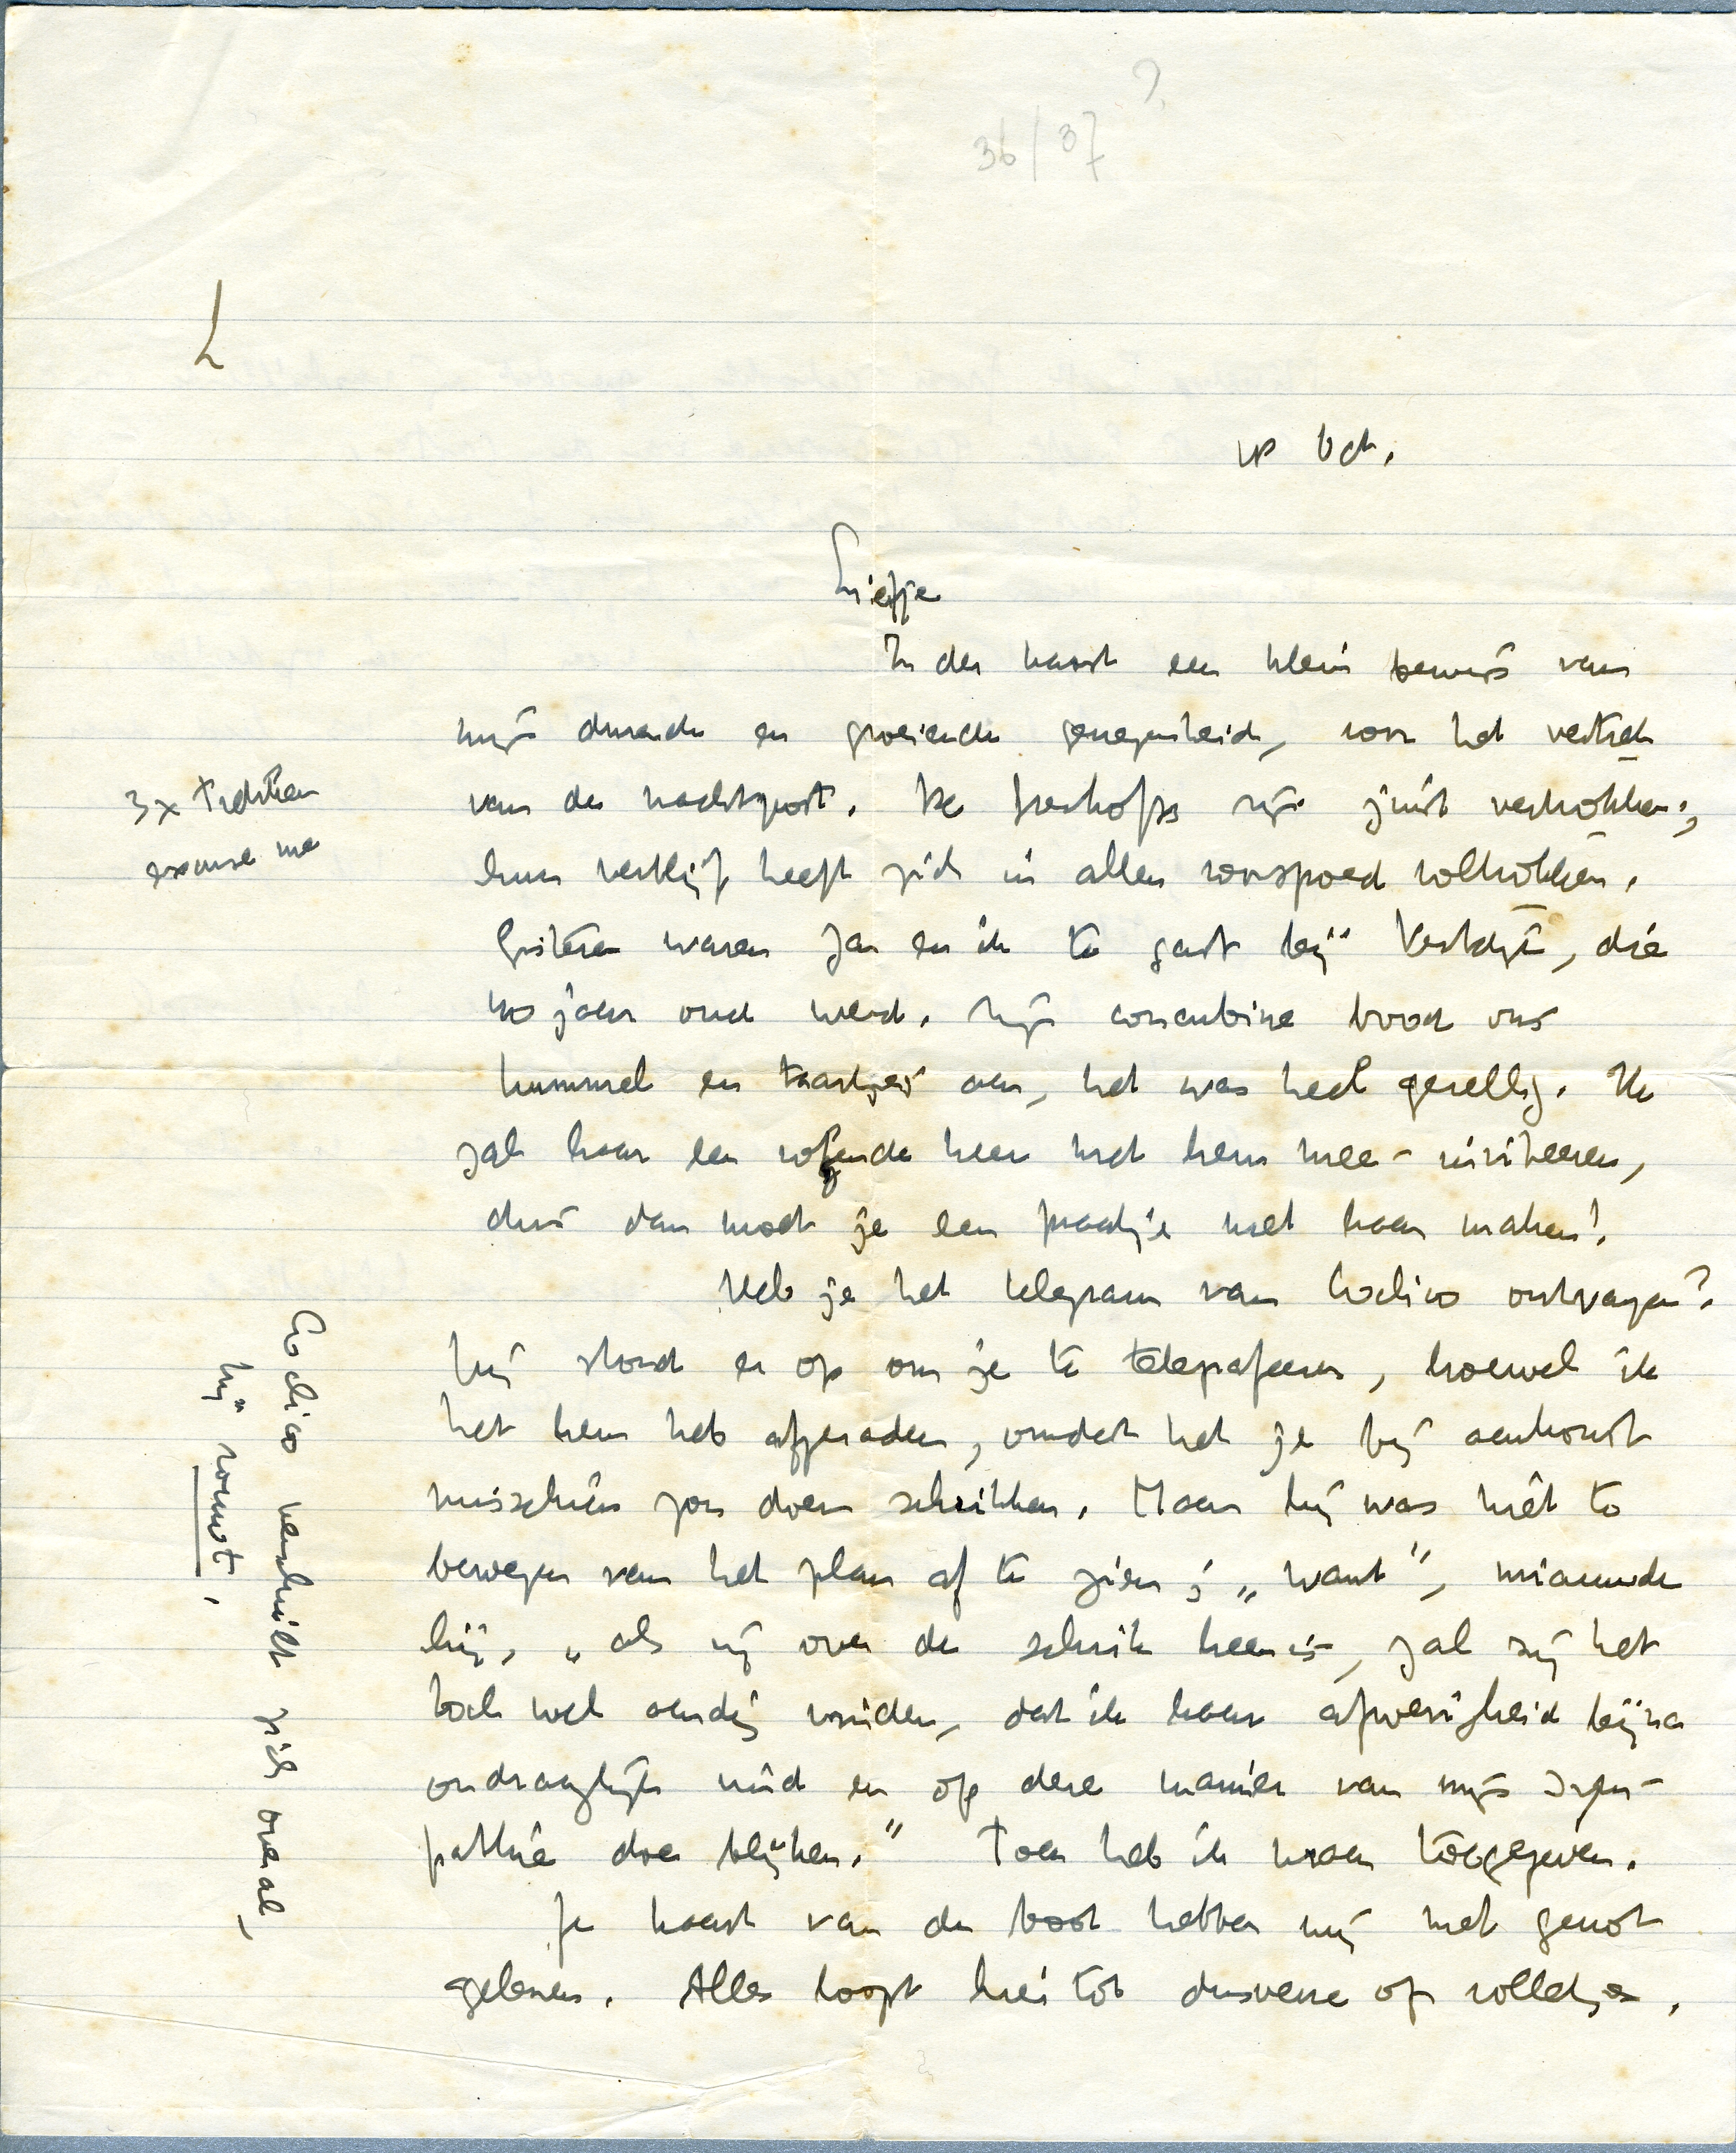 ?
36/37
L
Oct.
Liefje
In der haast een klein bewijs van
mijn durende en groeiende genegenheid, voor het vertrek
van de nachtpost. De zijn juist vertrokken;
hun verblijf heeft zich in allen voorspoed voltrokken.
Gisteren waren Jan en ik te gast bij Vestdijk, die
jaar oud werd. Zijn concubine bood ons
kummel en taartjes aan, het was heel gezellig. Ik
zal haar een volgende keer met hem mee-inviteeren,
dus dan moet je een praatje met haar maken!
Heb je het telegram van ontvangen?
Hij stond er op om je te telegrafeeren, hoewel ik
het hem heb afgeraden, omdat het je bij aankomst
misschien zou doen schrikken. Maar hij was niet te
bewegen van het plan af te zien; „want”, miauwde
hij, „als zij over de schrik heen is, zal zij het
toch wel aardig vinden, dat ik haar afwezigheid bijna
ondraaglijk vind en op deze manier van mijn sym-
pathie doe blijken.” Toen heb ik maar toegegeven.
Je kaart van de boot hebben wij met genot
gelezen. Alles loopt hier tot dusverre op rolletjes.
3x trekken
excuse me
verschuilt zich overal,
hij